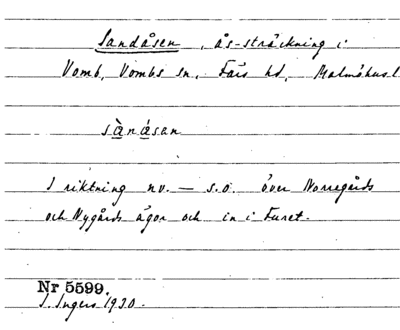 Sandåsen, ås-sträckning i:
Vomb, Vombs sn, Färs hd, Malmöhus l
sànásan
I riktning nv. — s.o. över Norregårds
och Nygårds ägor och in i Furet.
Nr 5599.
I. Ingers 1930.